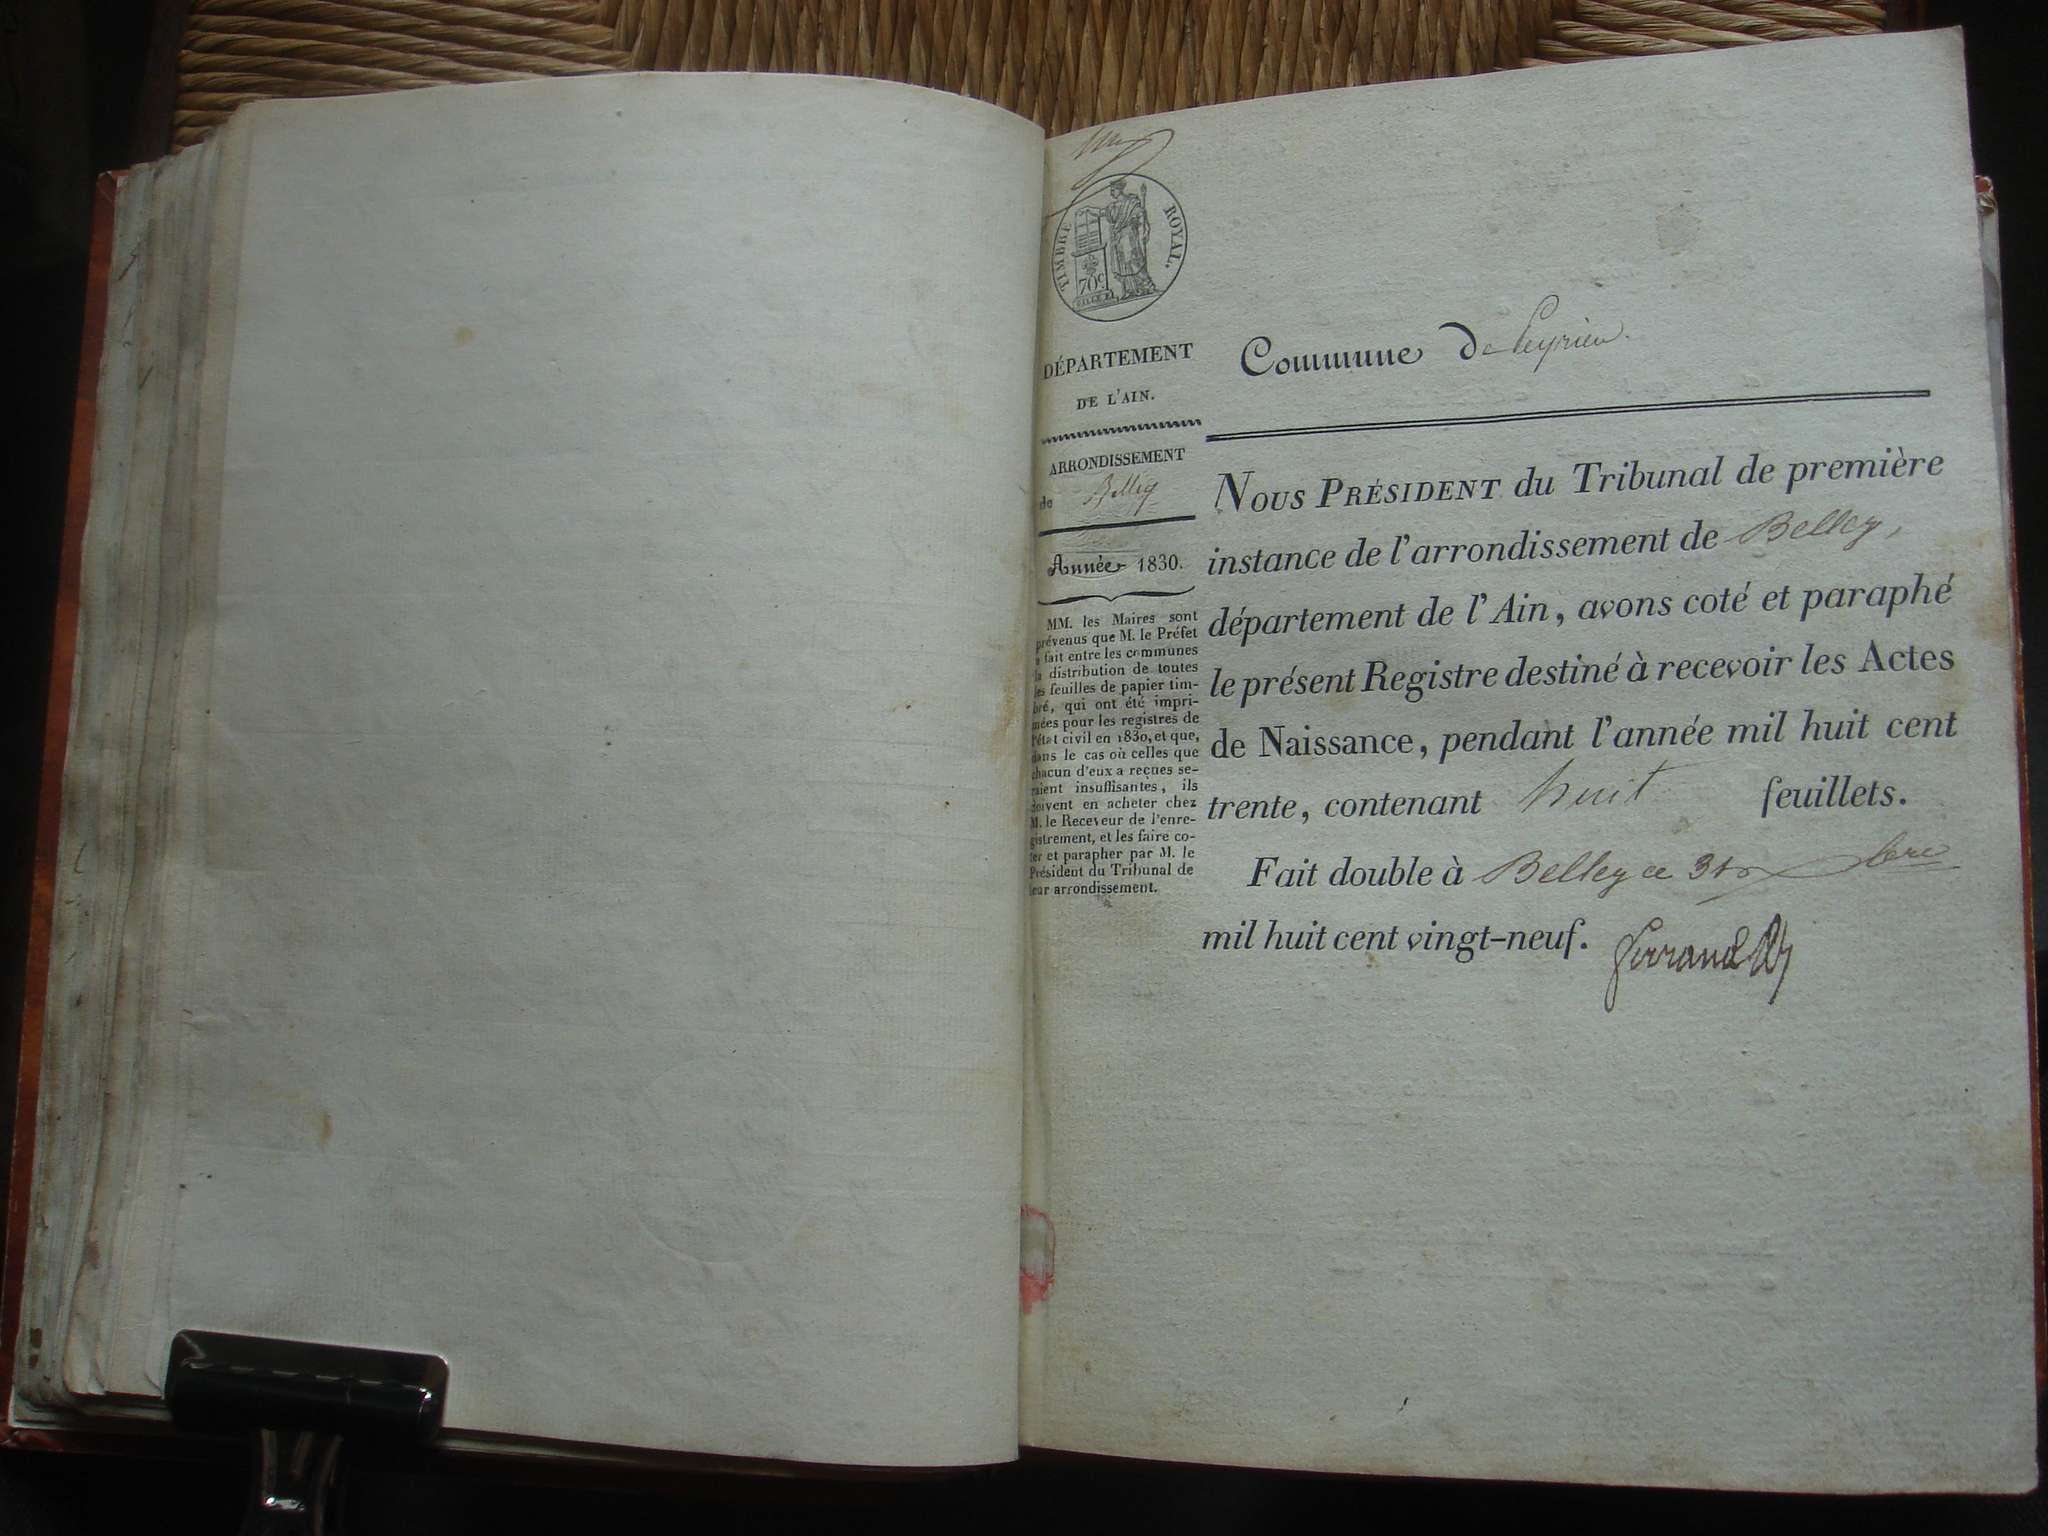 TIMBRE ROYAL.
70c
DÉPARTEMENT
DE L'AIN.
ARRONDISSEMENT
de Belley
Année 1830.
MM. les Maires sont
prévenus que M. le Préfet
a fait entre les communes
la distribution de toutes
les feuilles de papier tim-
bré, qui ont été impri-
mées pour les registres de
l'état civil en 1830, et que,
dans le cas où celles que
chacun d'eux a reçues se-
raient insuffisantes, ils
doivent en acheter chez
M. le Receveur de l'enre-
gistrement, et les faire co-
ter et parapher par M. le
Président du Tribunal de
leur arrondissement.
Commune De Peyrieu.
NOUS PRÉSIDENT du Tribunal de première
instance de l'arrondissement de Belley,
département de l'Ain, avons coté et paraphé
le présent Registre destiné à recevoir les Actes
de Naissance, pendant l'année mil huit cent
trente, contenant huit feuillets.
Fait double à Belley ce 31 xbre
mil huit cent vingt-neuf. Ferrand